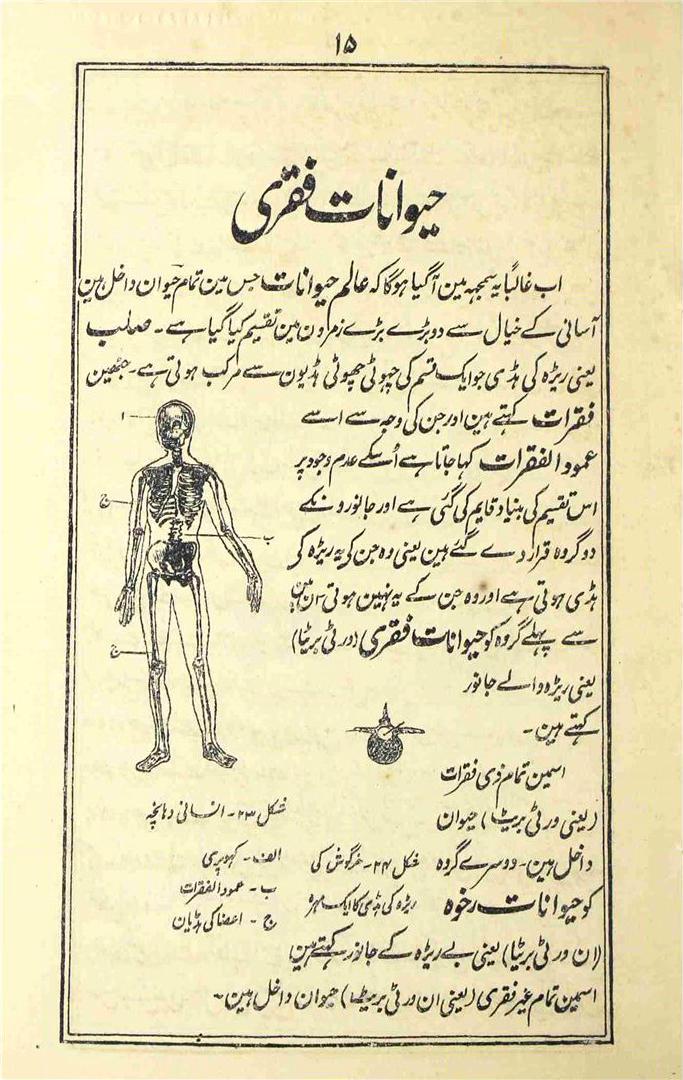 ۱۵
حیوانات فقری
اب غالباً یہ سمجھہ مین آگیا ہوگا کہ عالم حیوانات جس مین تمام حیوان داخل ہین
آسانی کے خیال سے دو بڑے بڑے زمرون مین تقسیم کیا گیا ہے۔ صلب
یعنی ریڑہ کی ہڈی جو ایک قسم کی چھوٹی چھوٹی ہڈیون سے مرکب ہوتی ہے۔ جنھین
فقرات کہتے ہین اور جن کی وجہ سے اسے
عمود الفقرات کہا جاتا ہے اُسکے عدم وجود پر
اس تقسیم کی بنیاد قایم کی گئی ہے اور جانورونکے
دو گروہ قرار دے گئے ہین یعنی وہ جن کی یہ ریڑہ کی
ہڈی ہوتی ہے اور وہ جن کے یہ نہین ہوتی ان مین
سے پہلے گروہ کو حیوانات فقری (ورٹی بریٹا)
یعنی ریڑہ والے جانور
کہتے ہین۔
اسمین تمام ذی فقرات
(یعنی ورٹی بریٹ) حیوان
داخل ہین۔ دوسرے گروہ
کو حیوانات رخوہ
(ان ورٹی بریٹا) یعنی بے ریڑہ کے جانور کہتے ہین
اسمین تمام غیر فقری (یعنی ان ورٹی بریٹ) حیوان داخل ہین۔
ا
ج
ب
ج
شکل ۲۳۔ انسانی ڈہانچہ
الف۔ کہوپری
ب۔ عمود الفقرات
ج۔ اعضا کی ہڈیان
شکل ۲۴۔ خرگوش کی
ریڑہ کی ہڈی کا ایک مہرہ